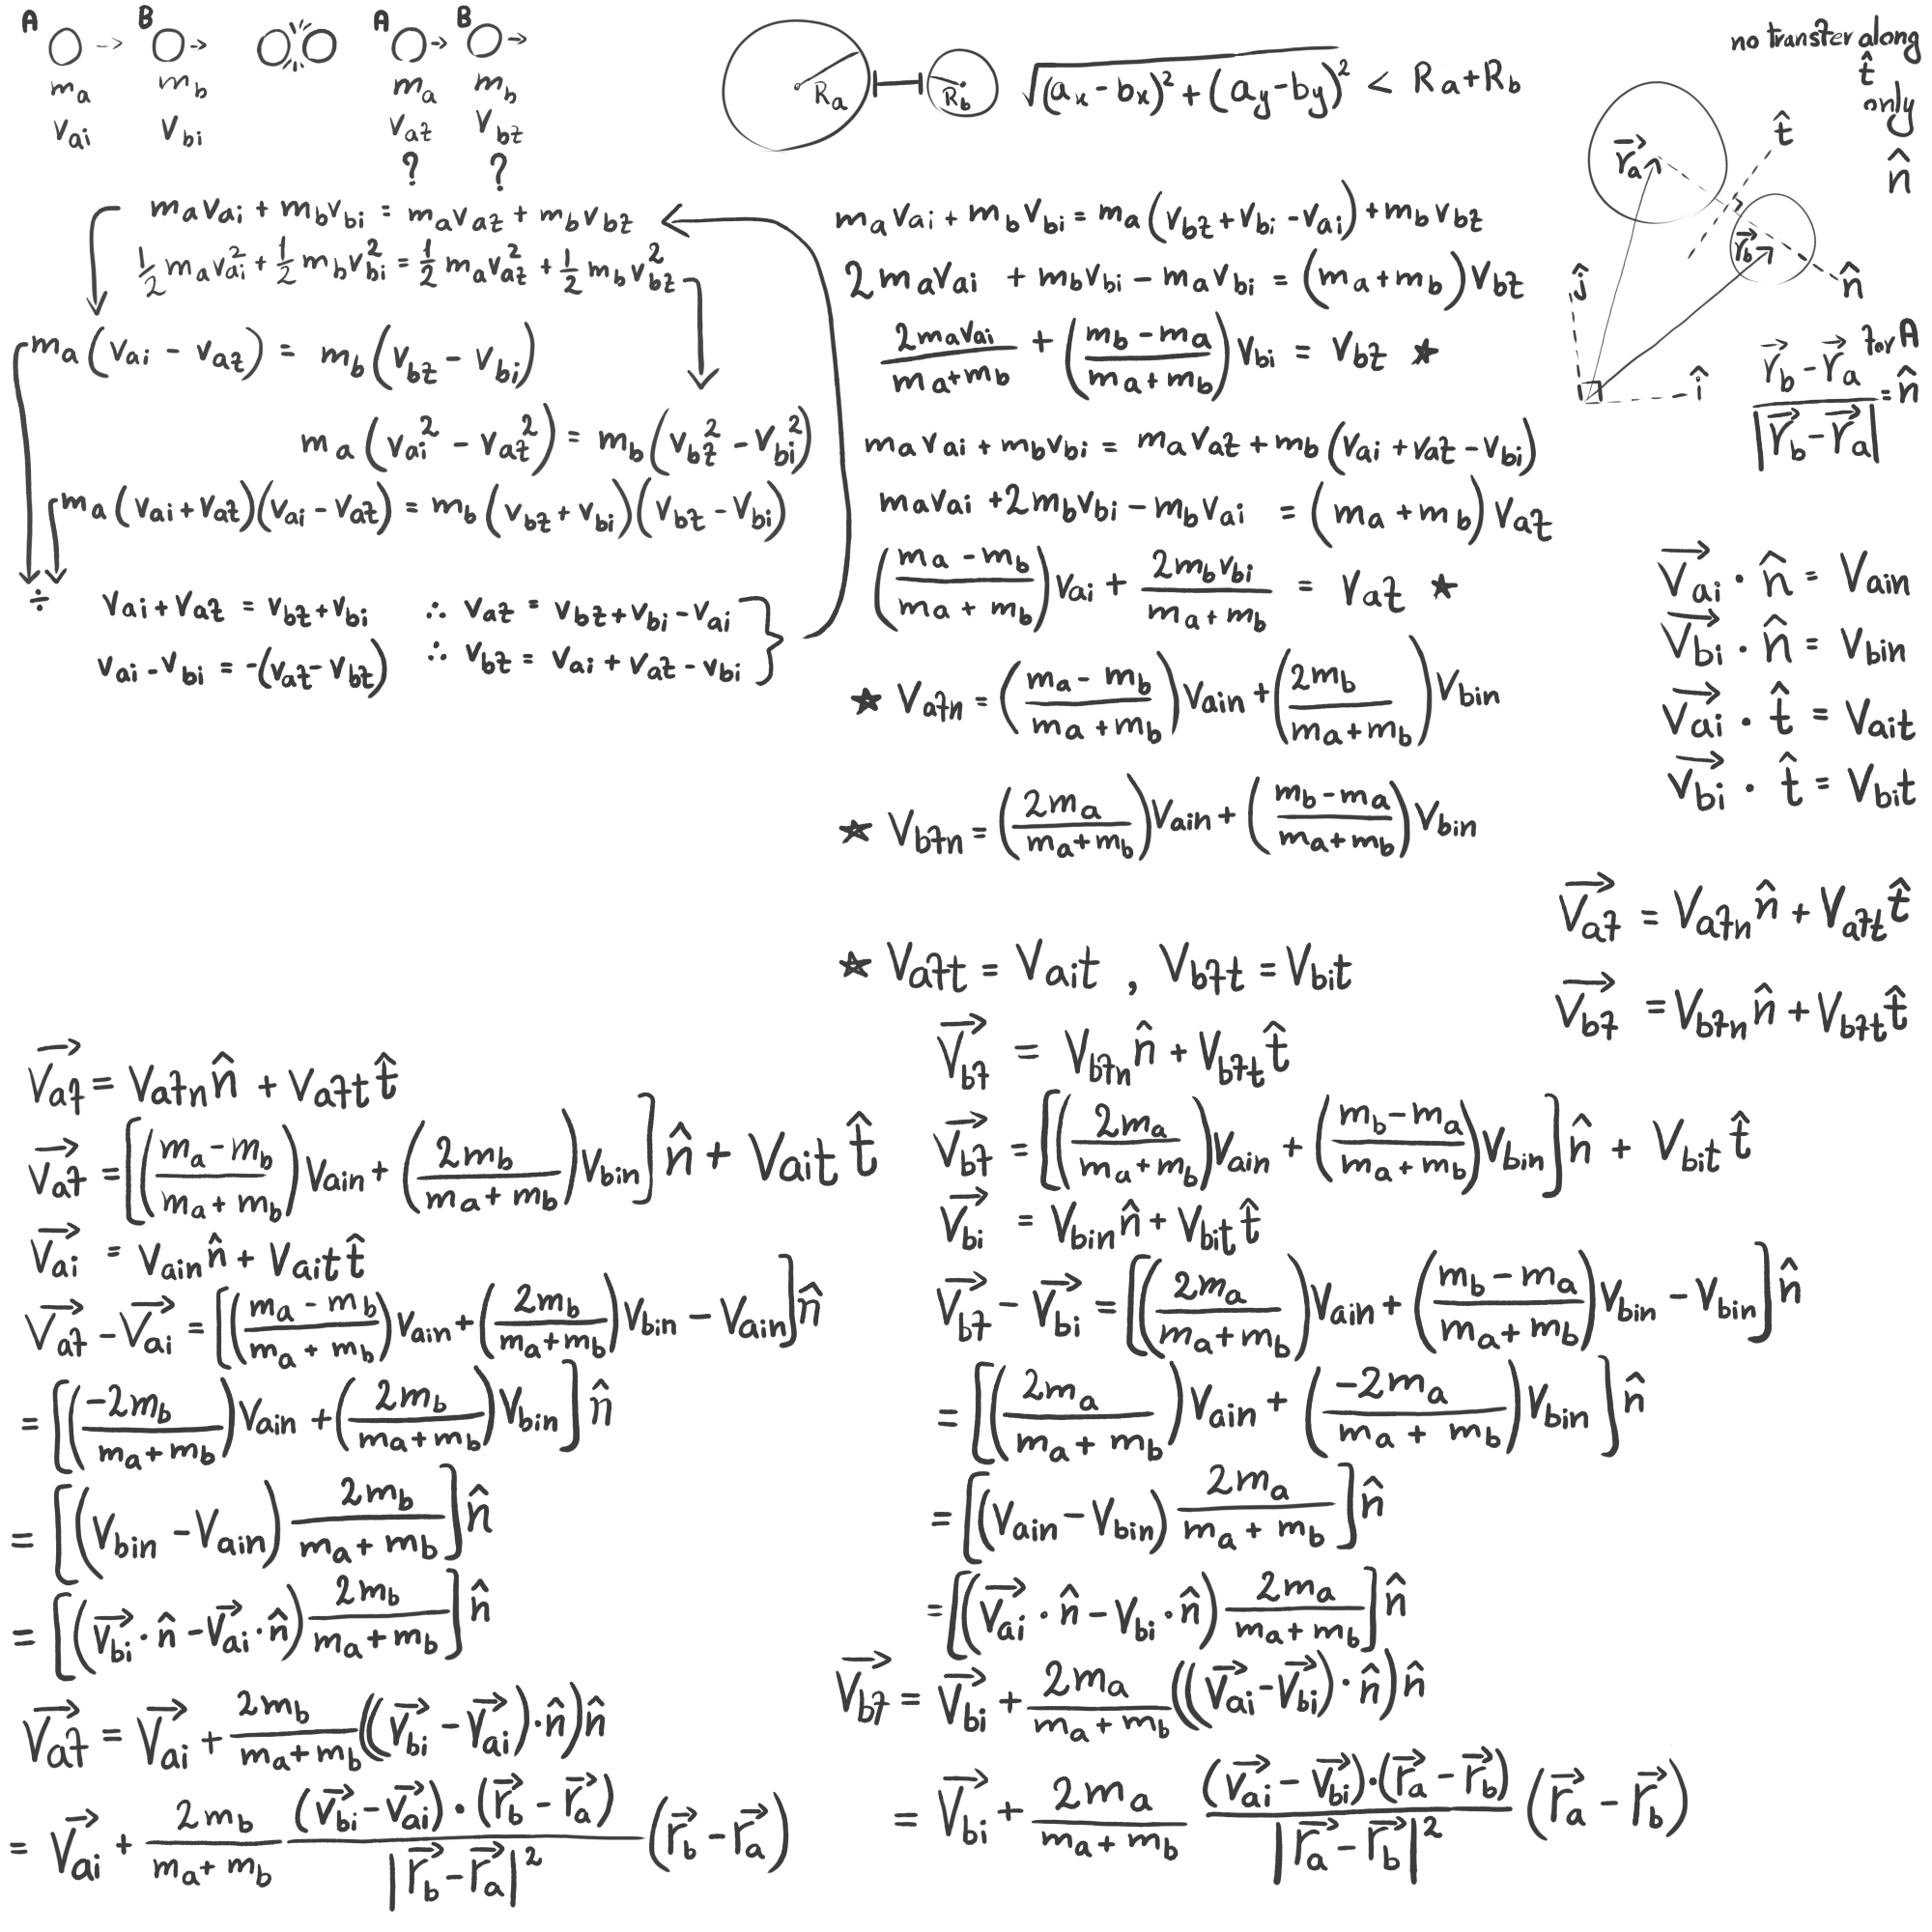 A B A B
m_a m_b m_a m_b
v_ai v_bi v_af v_bf
? ?
R_a R_b √((a_x - b_x)² + (a_y - b_y)²) < R_a + R_b
no transfer along
t̂
only
n̂
r⃗_a t̂
r⃗_b n̂
ĵ î
for A
(r⃗_b - r⃗_a) / |r⃗_b - r⃗_a| = n̂
m_a v_ai + m_b v_bi = m_a v_af + m_b v_bf
½ m_a v_ai² + ½ m_b v_bi² = ½ m_a v_af² + ½ m_b v_bf²
m_a (v_ai - v_af) = m_b (v_bf - v_bi)
m_a (v_ai² - v_af²) = m_b (v_bf² - v_bi²)
m_a (v_ai + v_af)(v_ai - v_af) = m_b (v_bf + v_bi)(v_bf - v_bi)
÷
v_ai + v_af = v_bf + v_bi ∴ v_af = v_bf + v_bi - v_ai
v_ai - v_bi = -(v_af - v_bf) ∴ v_bf = v_ai + v_af - v_bi
m_a v_ai + m_b v_bi = m_a (v_bf + v_bi - v_ai) + m_b v_bf
2 m_a v_ai + m_b v_bi - m_a v_bi = (m_a + m_b) v_bf
2m_a v_ai / (m_a + m_b) + ((m_b - m_a) / (m_a + m_b)) v_bi = v_bf ★
m_a v_ai + m_b v_bi = m_a v_af + m_b (v_ai + v_af - v_bi)
m_a v_ai + 2 m_b v_bi - m_b v_ai = (m_a + m_b) v_af
((m_a - m_b) / (m_a + m_b)) v_ai + 2m_b v_bi / (m_a + m_b) = v_af ★
★ v_afn = ((m_a - m_b) / (m_a + m_b)) v_ain + (2m_b / (m_a + m_b)) v_bin
★ v_bfn = (2m_a / (m_a + m_b)) v_ain + ((m_b - m_a) / (m_a + m_b)) v_bin
★ v_aft = v_ait , v_bft = v_bit
v⃗_ai · n̂ = v_ain
v⃗_bi · n̂ = v_bin
v⃗_ai · t̂ = v_ait
v⃗_bi · t̂ = v_bit
v⃗_af = v_afn n̂ + v_aft t̂
v⃗_bf = v_bfn n̂ + v_bft t̂
v⃗_af = v_afn n̂ + v_aft t̂
v⃗_af = [((m_a - m_b) / (m_a + m_b)) v_ain + (2m_b / (m_a + m_b)) v_bin] n̂ + v_ait t̂
v⃗_ai = v_ain n̂ + v_ait t̂
v⃗_af - v⃗_ai = [((m_a - m_b) / (m_a + m_b)) v_ain + (2m_b / (m_a + m_b)) v_bin - v_ain] n̂
= [(-2m_b / (m_a + m_b)) v_ain + (2m_b / (m_a + m_b)) v_bin] n̂
= [(v_bin - v_ain) 2m_b / (m_a + m_b)] n̂
= [(v⃗_bi · n̂ - v⃗_ai · n̂) 2m_b / (m_a + m_b)] n̂
v⃗_af = v⃗_ai + 2m_b / (m_a + m_b) ((v⃗_bi - v⃗_ai) · n̂) n̂
= v⃗_ai + 2m_b / (m_a + m_b) (v⃗_bi - v⃗_ai) · (r⃗_b - r⃗_a) / |r⃗_b - r⃗_a|² (r⃗_b - r⃗_a)
v⃗_bf = v_bfn n̂ + v_bft t̂
v⃗_bf = [(2m_a / (m_a + m_b)) v_ain + ((m_b - m_a) / (m_a + m_b)) v_bin] n̂ + v_bit t̂
v⃗_bi = v_bin n̂ + v_bit t̂
v⃗_bf - v⃗_bi = [(2m_a / (m_a + m_b)) v_ain + ((m_b - m_a) / (m_a + m_b)) v_bin - v_bin] n̂
= [(2m_a / (m_a + m_b)) v_ain + (-2m_a / (m_a + m_b)) v_bin] n̂
= [(v_ain - v_bin) 2m_a / (m_a + m_b)] n̂
= [(v⃗_ai · n̂ - v_bi · n̂) 2m_a / (m_a + m_b)] n̂
v⃗_bf = v⃗_bi + 2m_a / (m_a + m_b) ((v⃗_ai - v⃗_bi) · n̂) n̂
= v⃗_bi + 2m_a / (m_a + m_b) (v⃗_ai - v⃗_bi) · (r⃗_a - r⃗_b) / |r⃗_a - r⃗_b|² (r⃗_a - r⃗_b)